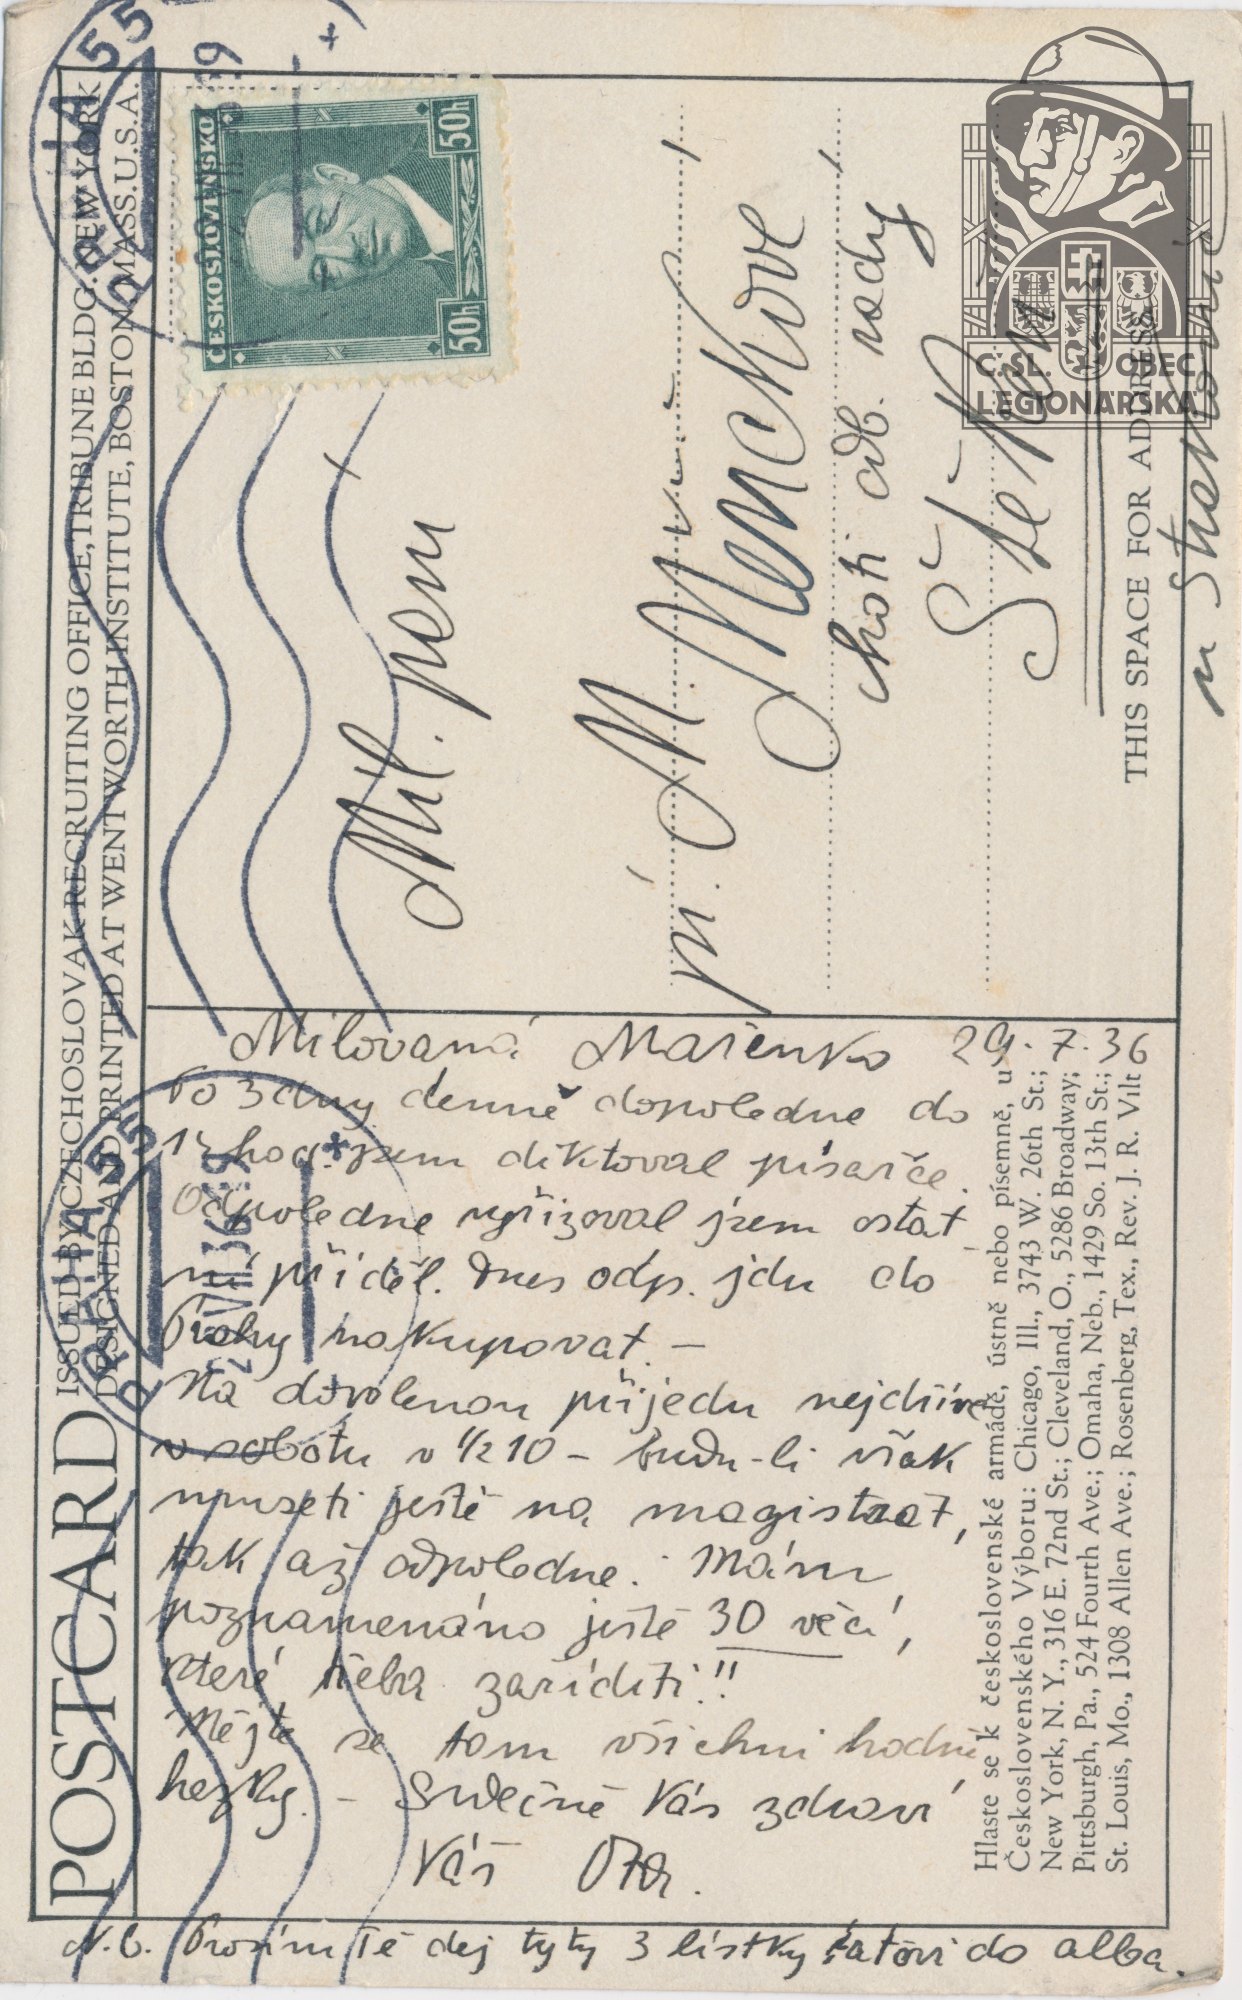 POSTCARD
ISSUED BY CZECHOSLOVAK RECRUITING OFFICE, TRIBUNE BLDG. NEW YORK
DESIGNED AND PRINTED AT WENTWORTH INSTITUTE, BOSTON, MASS. U.S.A.
PRAHA 55
ČESKOSLOVENSKO
50h 50h
Mil. paní
pí. M.
Menclíkové
choti odb. rady
Štěkeň
THIS SPACE FOR ADDRESS
u Strakonic
PRAHA 55
Milovaná Mařenko 29.7.36
Po 3 dny denně dopoledne do
hod. jsem diktoval písařce.
Odpoledne vyřizoval jsem ostat
ní příděl. Dnes odp. jdu do
Prahy nakupovat. –
Na dovolenou přijedu nejdříve
v sobotu v 1/2 10 – budu-li však
museti ještě na magistrát,
tak až odpoledne. Mám
poznamenáno ještě 30 věcí,
které třeba zaříditi!!
Mějte se tam všichni hodně
hezky. – Srdečně Vás zdraví
Váš Ota.
N.B. Prosím Tě dej tyty 3 lístky taťovi do alba.
Hlaste se k československé armádě, ústně nebo písemně, u
Československého Výboru: Chicago, Ill., 3743 W. 26th St.;
New York, N. Y., 316 E. 72nd St.; Cleveland, O., 5286 Broadway;
Pittsburgh, Pa., 524 Fourth Ave.; Omaha, Neb., 1429 So. 13th St.;
St. Louis, Mo., 1308 Allen Ave.; Rosenberg, Tex., Rev. J. R. Vilt
Č·SL. OBEC
LEGIONÁŘSKÁ